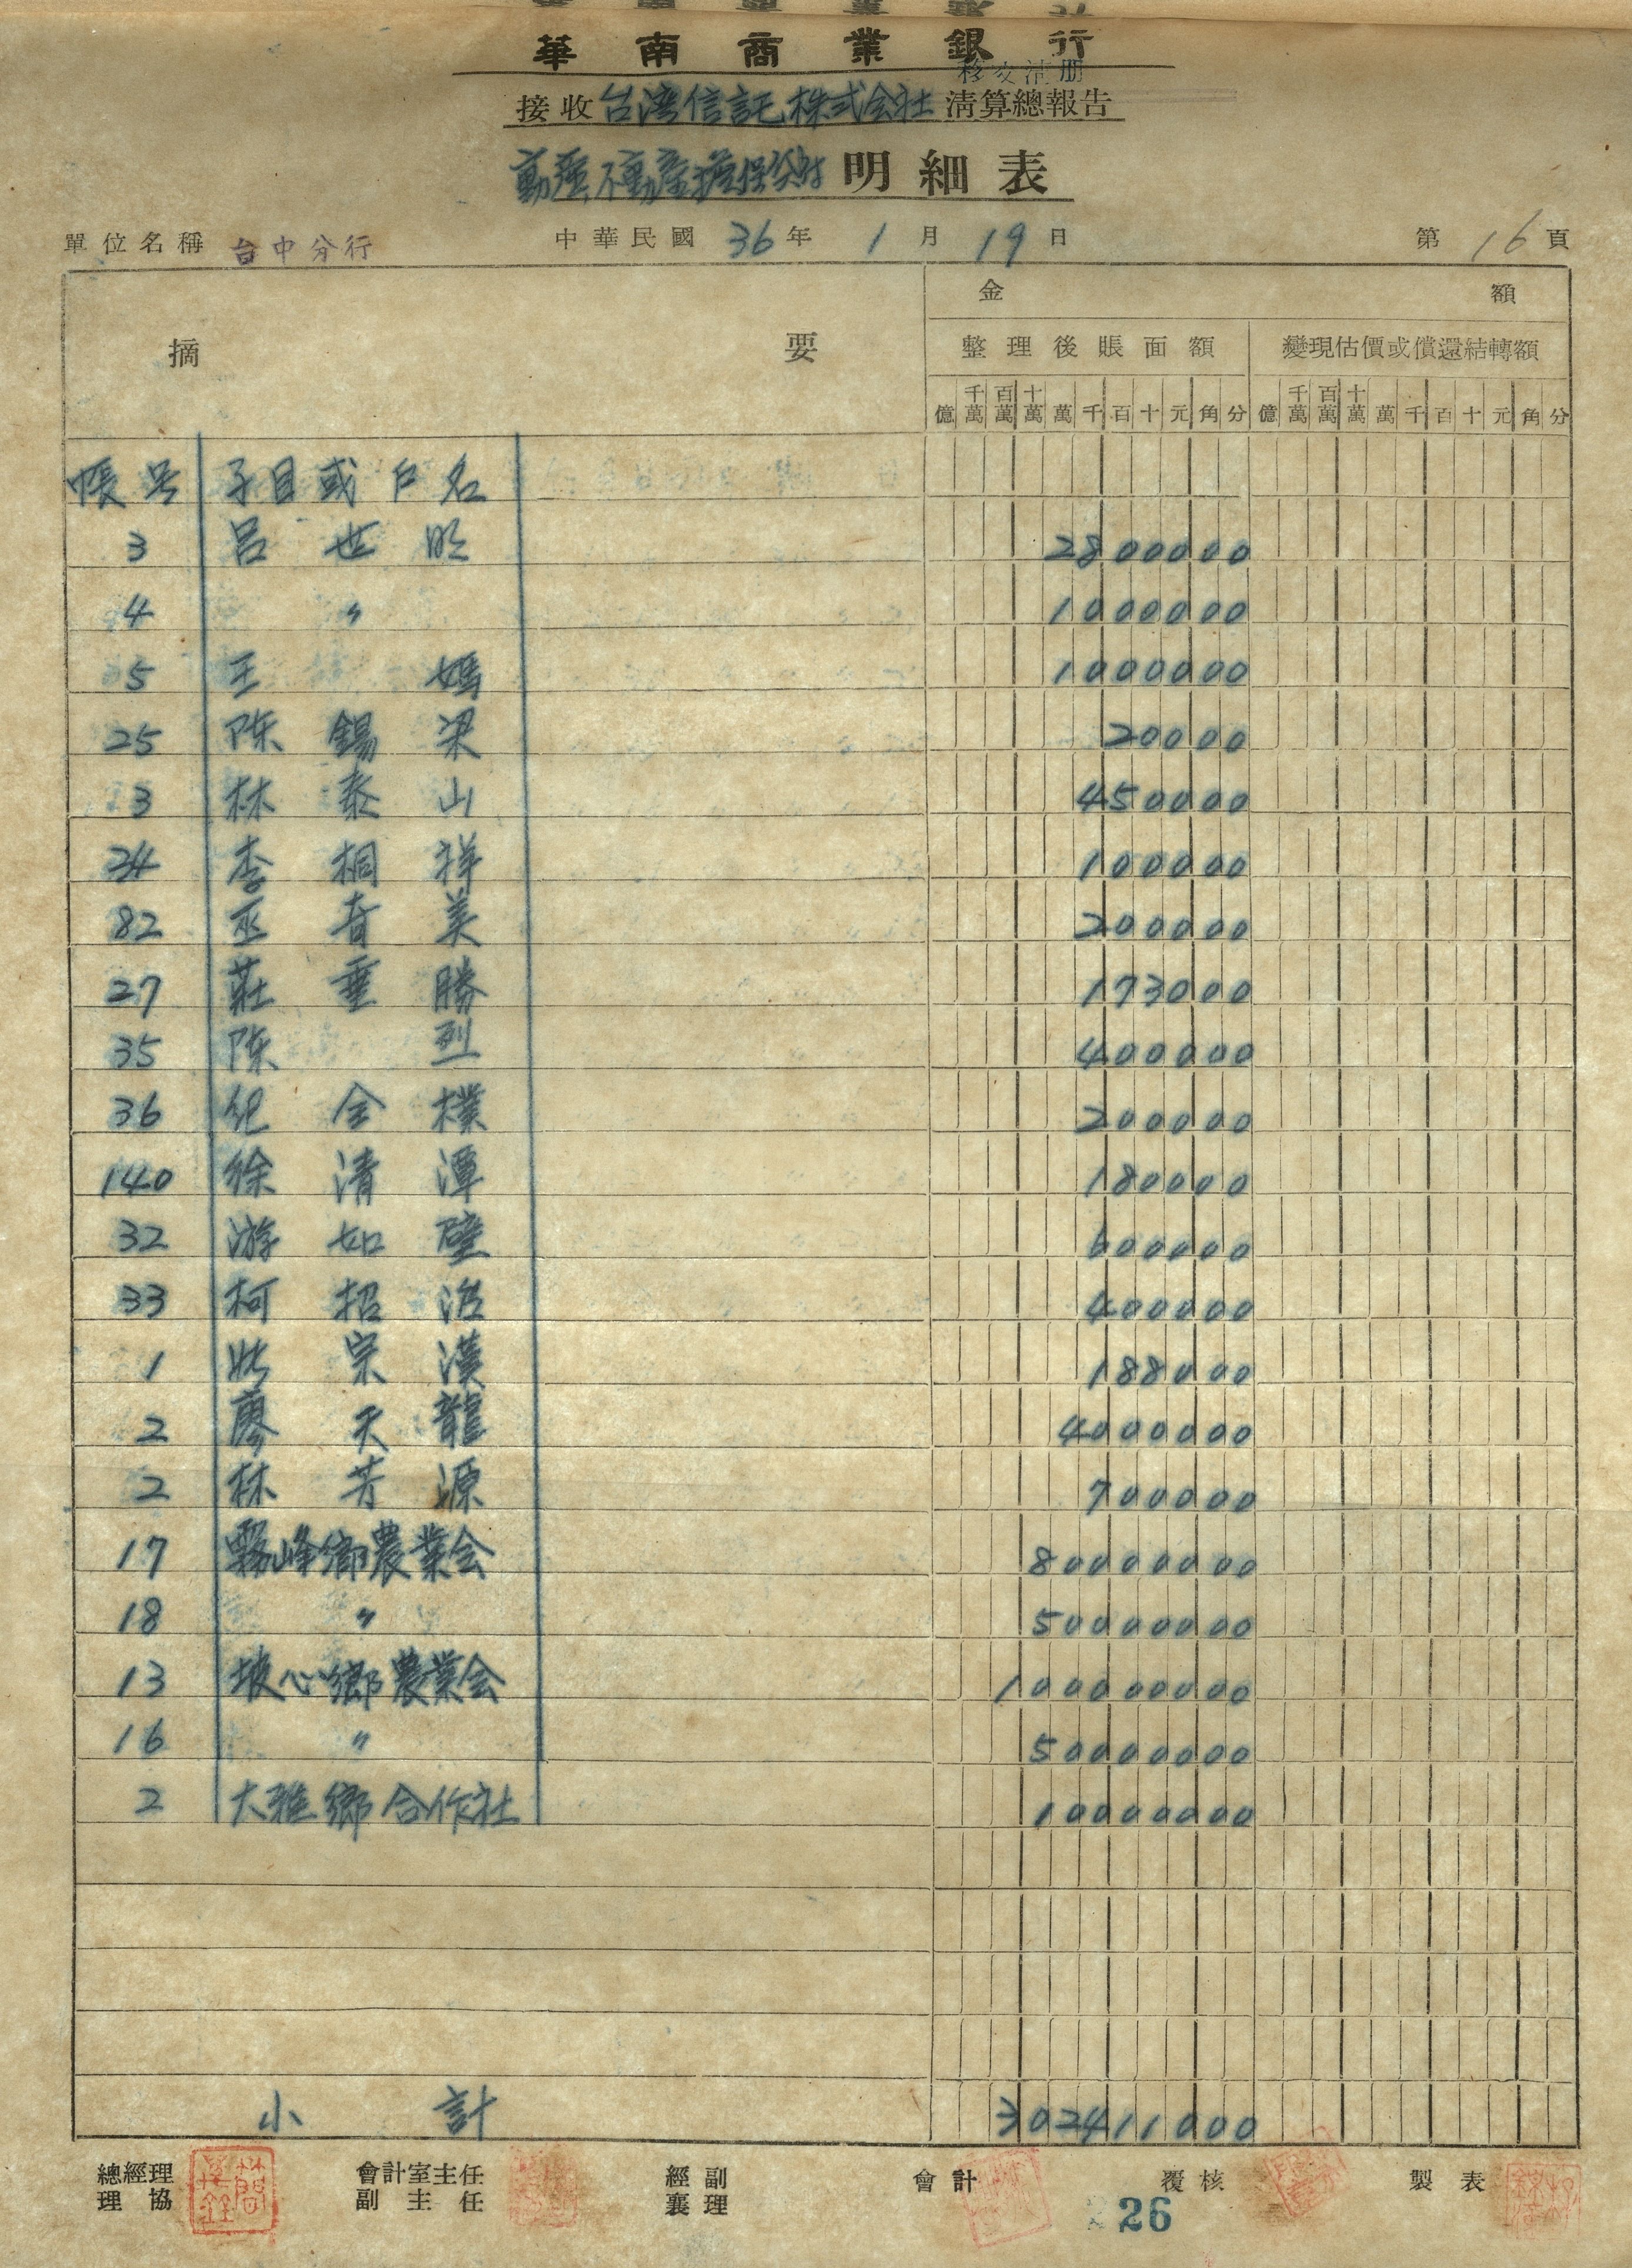 華南商業銀行
移交清册
接收台湾信託株式会社清算總報告
不動產擔保 明細表
單位名稱 台中分行 中華民國 36 年 1 月 19 日 第 16 頁
摘要 金額
整理後賬面額 變現估價或償還結轉額
億 千萬 百萬 十萬 萬 千 百 十 元 角 分 億 千萬 百萬 十萬 萬 千 百 十 元 角 分
帳号 子目或户名
3 呂世明 2800000
4 〃 1000000
5 王媽 1000000
25 陈錫梁 20000
3 林泰山 450000
34 李桐祥 100000
82 巫育美 200000
27 莊垂勝 173000
35 陈烈 400000
36 紀金樸 200000
140 徐清潭 180000
32 游如璧 600000
33 柯招治 400000
1 宗漢 188000
2 廖天龍 4000000
2 林芳源 700000
17 霧峰鄉農業会 80000000
18 〃 50000000
13 坡心鄉農業会 100000000
16 〃 50000000
2 大雅鄉合作社 10000000
小計 302411000
總經理 會計室主任 經副 會計 覆核 製表
理協 副主任 襄理
26